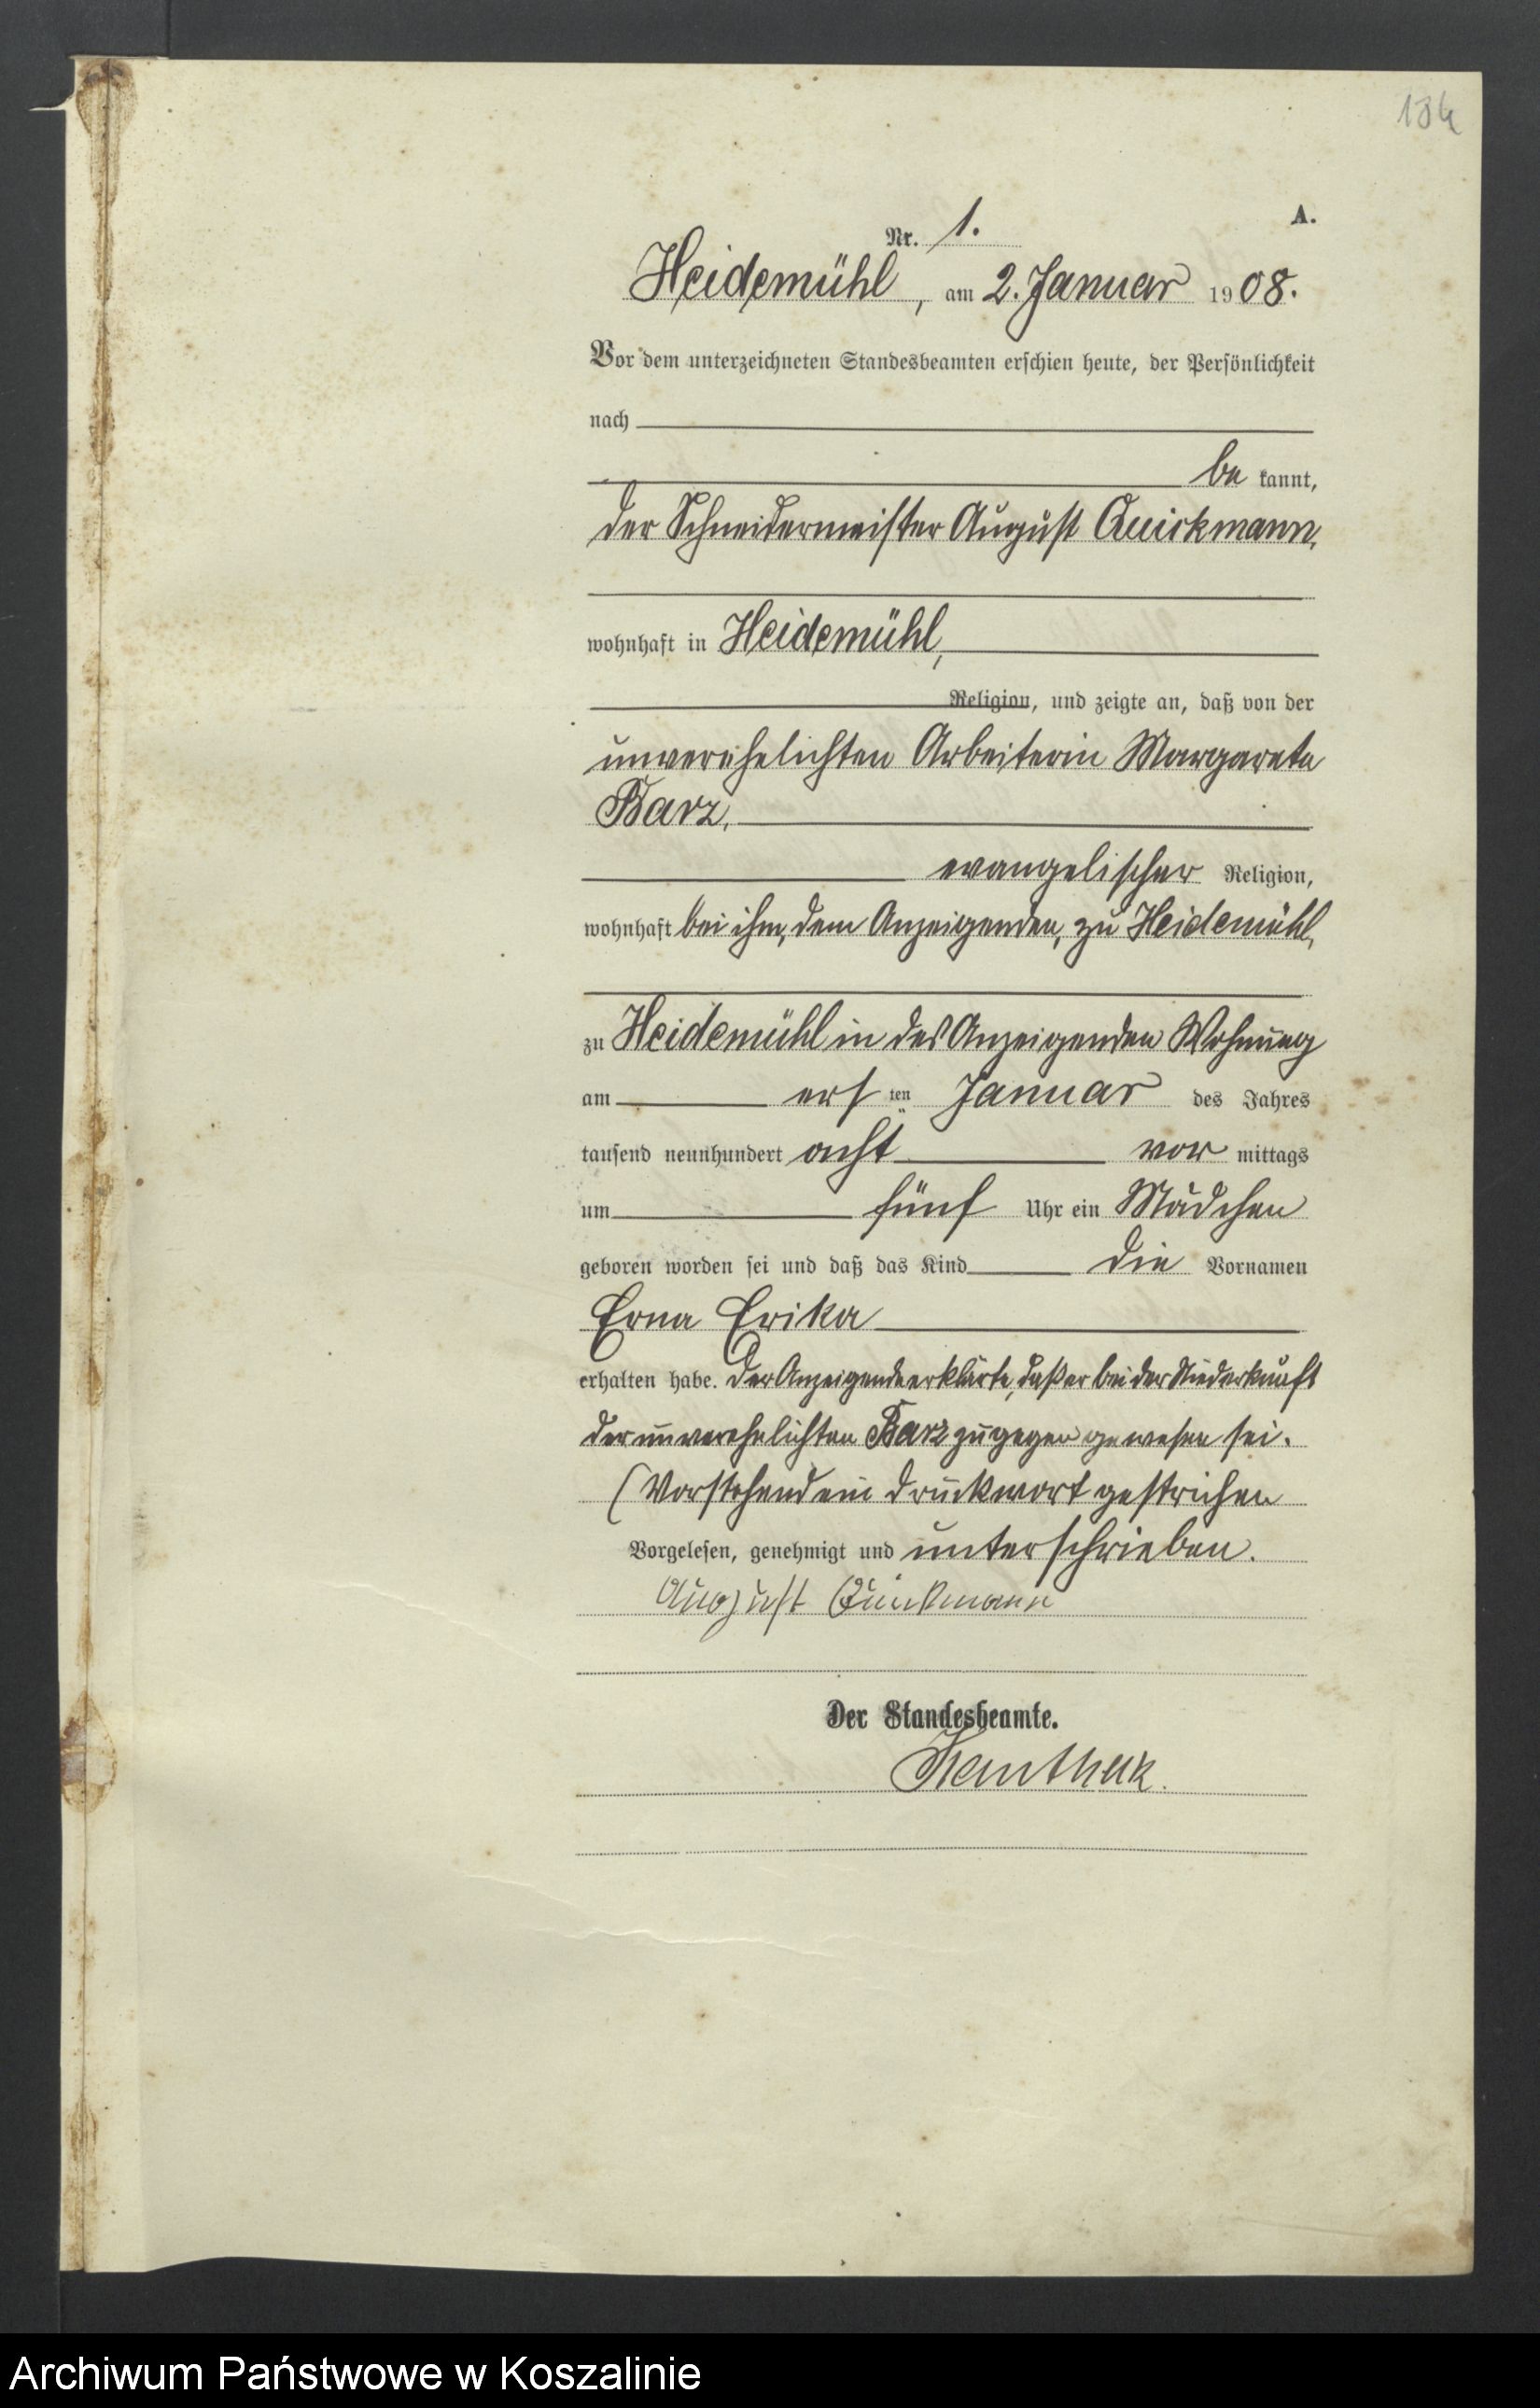 134
A.
Nr. 1.
Heidemühl, am 2. Januar 1908.
Vor dem unterzeichneten Standesbeamten erschien heute, der Persönlichkeit
nach
be kannt,
der Schneidermeister August Quickmann,
wohnhaft in Heidemühl,
Religion, und zeigte an, daß von der
unverehelichten Arbeiterin Margarete
Barz,
evangelischer Religion,
wohnhaft bei ihm, dem Anzeigenden, zu Heidemühl,
zu Heidemühl in des Anzeigenden Wohnung
am ersten Januar des Jahres
tausend neunhundert acht vor mittags
um fünf Uhr ein Mädchen
geboren worden sei und daß das Kind die Vornamen
Erna Erika
erhalten habe. Der Anzeigende erklärte, daß er bei der Niederkunft
der unverehelichten Barz zugegen gewesen sei.
(Vorstehend ein Druckwort gestrichen
Vorgelesen, genehmigt und unterschrieben.
August Quickmann
Der Standesbeamte.
Archiwum Państwowe w Koszalinie